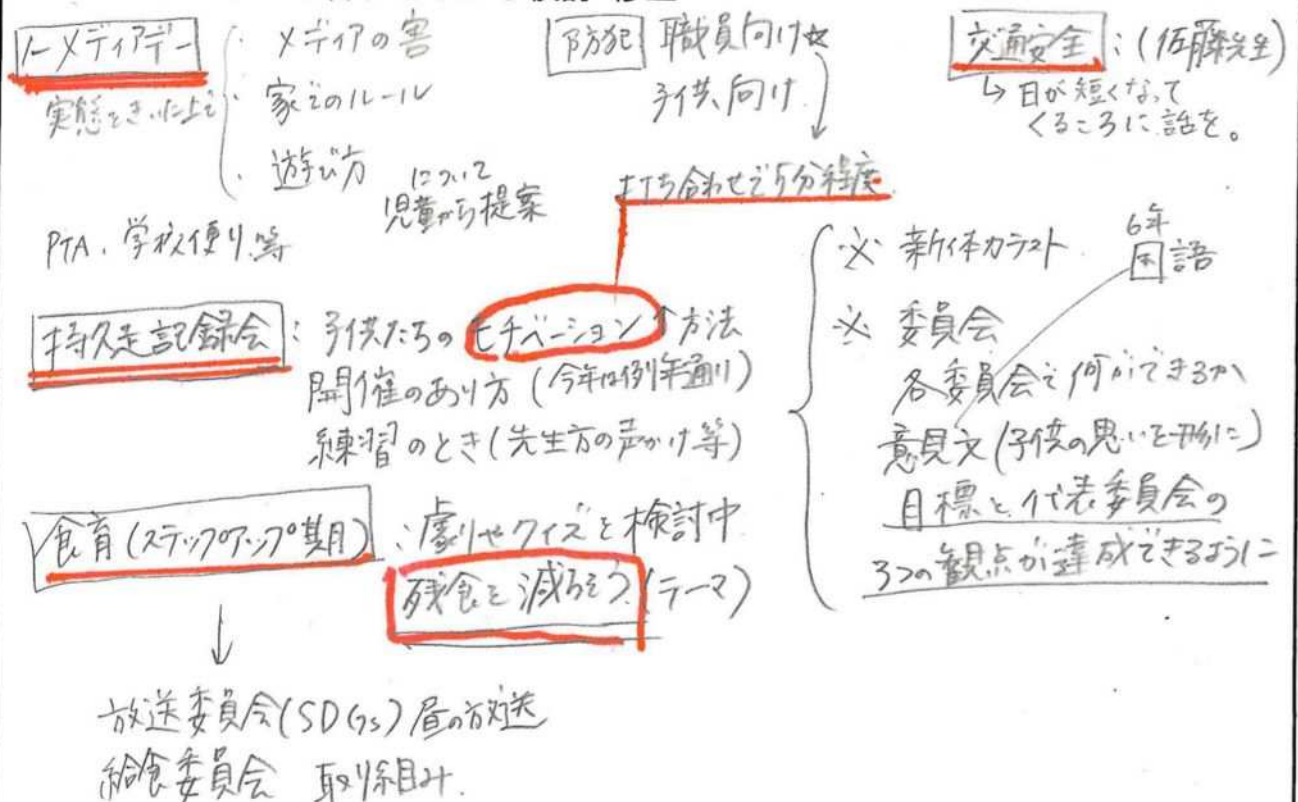 ノーメディアデー
実態をきいた上で
・メディアの害
・家でのルール
・遊び方
について
児童から提案
PTA、学校便り等
防犯 職員向け☆
子供向け
打ち合わせで5分程度
交通安全:(佐藤先生)
↳日が短くなって
くるころに話を。
持久走記録会:子供たちのモチベーション↑方法
開催のあり方(今年は例年通り)
練習のとき(先生方の声かけ等)
食育(ステップアップ期間):劇やクイズを検討中
残食を減らそう(テーマ)
↓
放送委員会(SDGs)昼の放送
給食委員会 取り組み
※ 新体力テスト
6年
国語
※ 委員会
各委員会で何ができるか
意見文(子供の思いを形に)
目標と代表委員会の
3つの観点が達成できるように